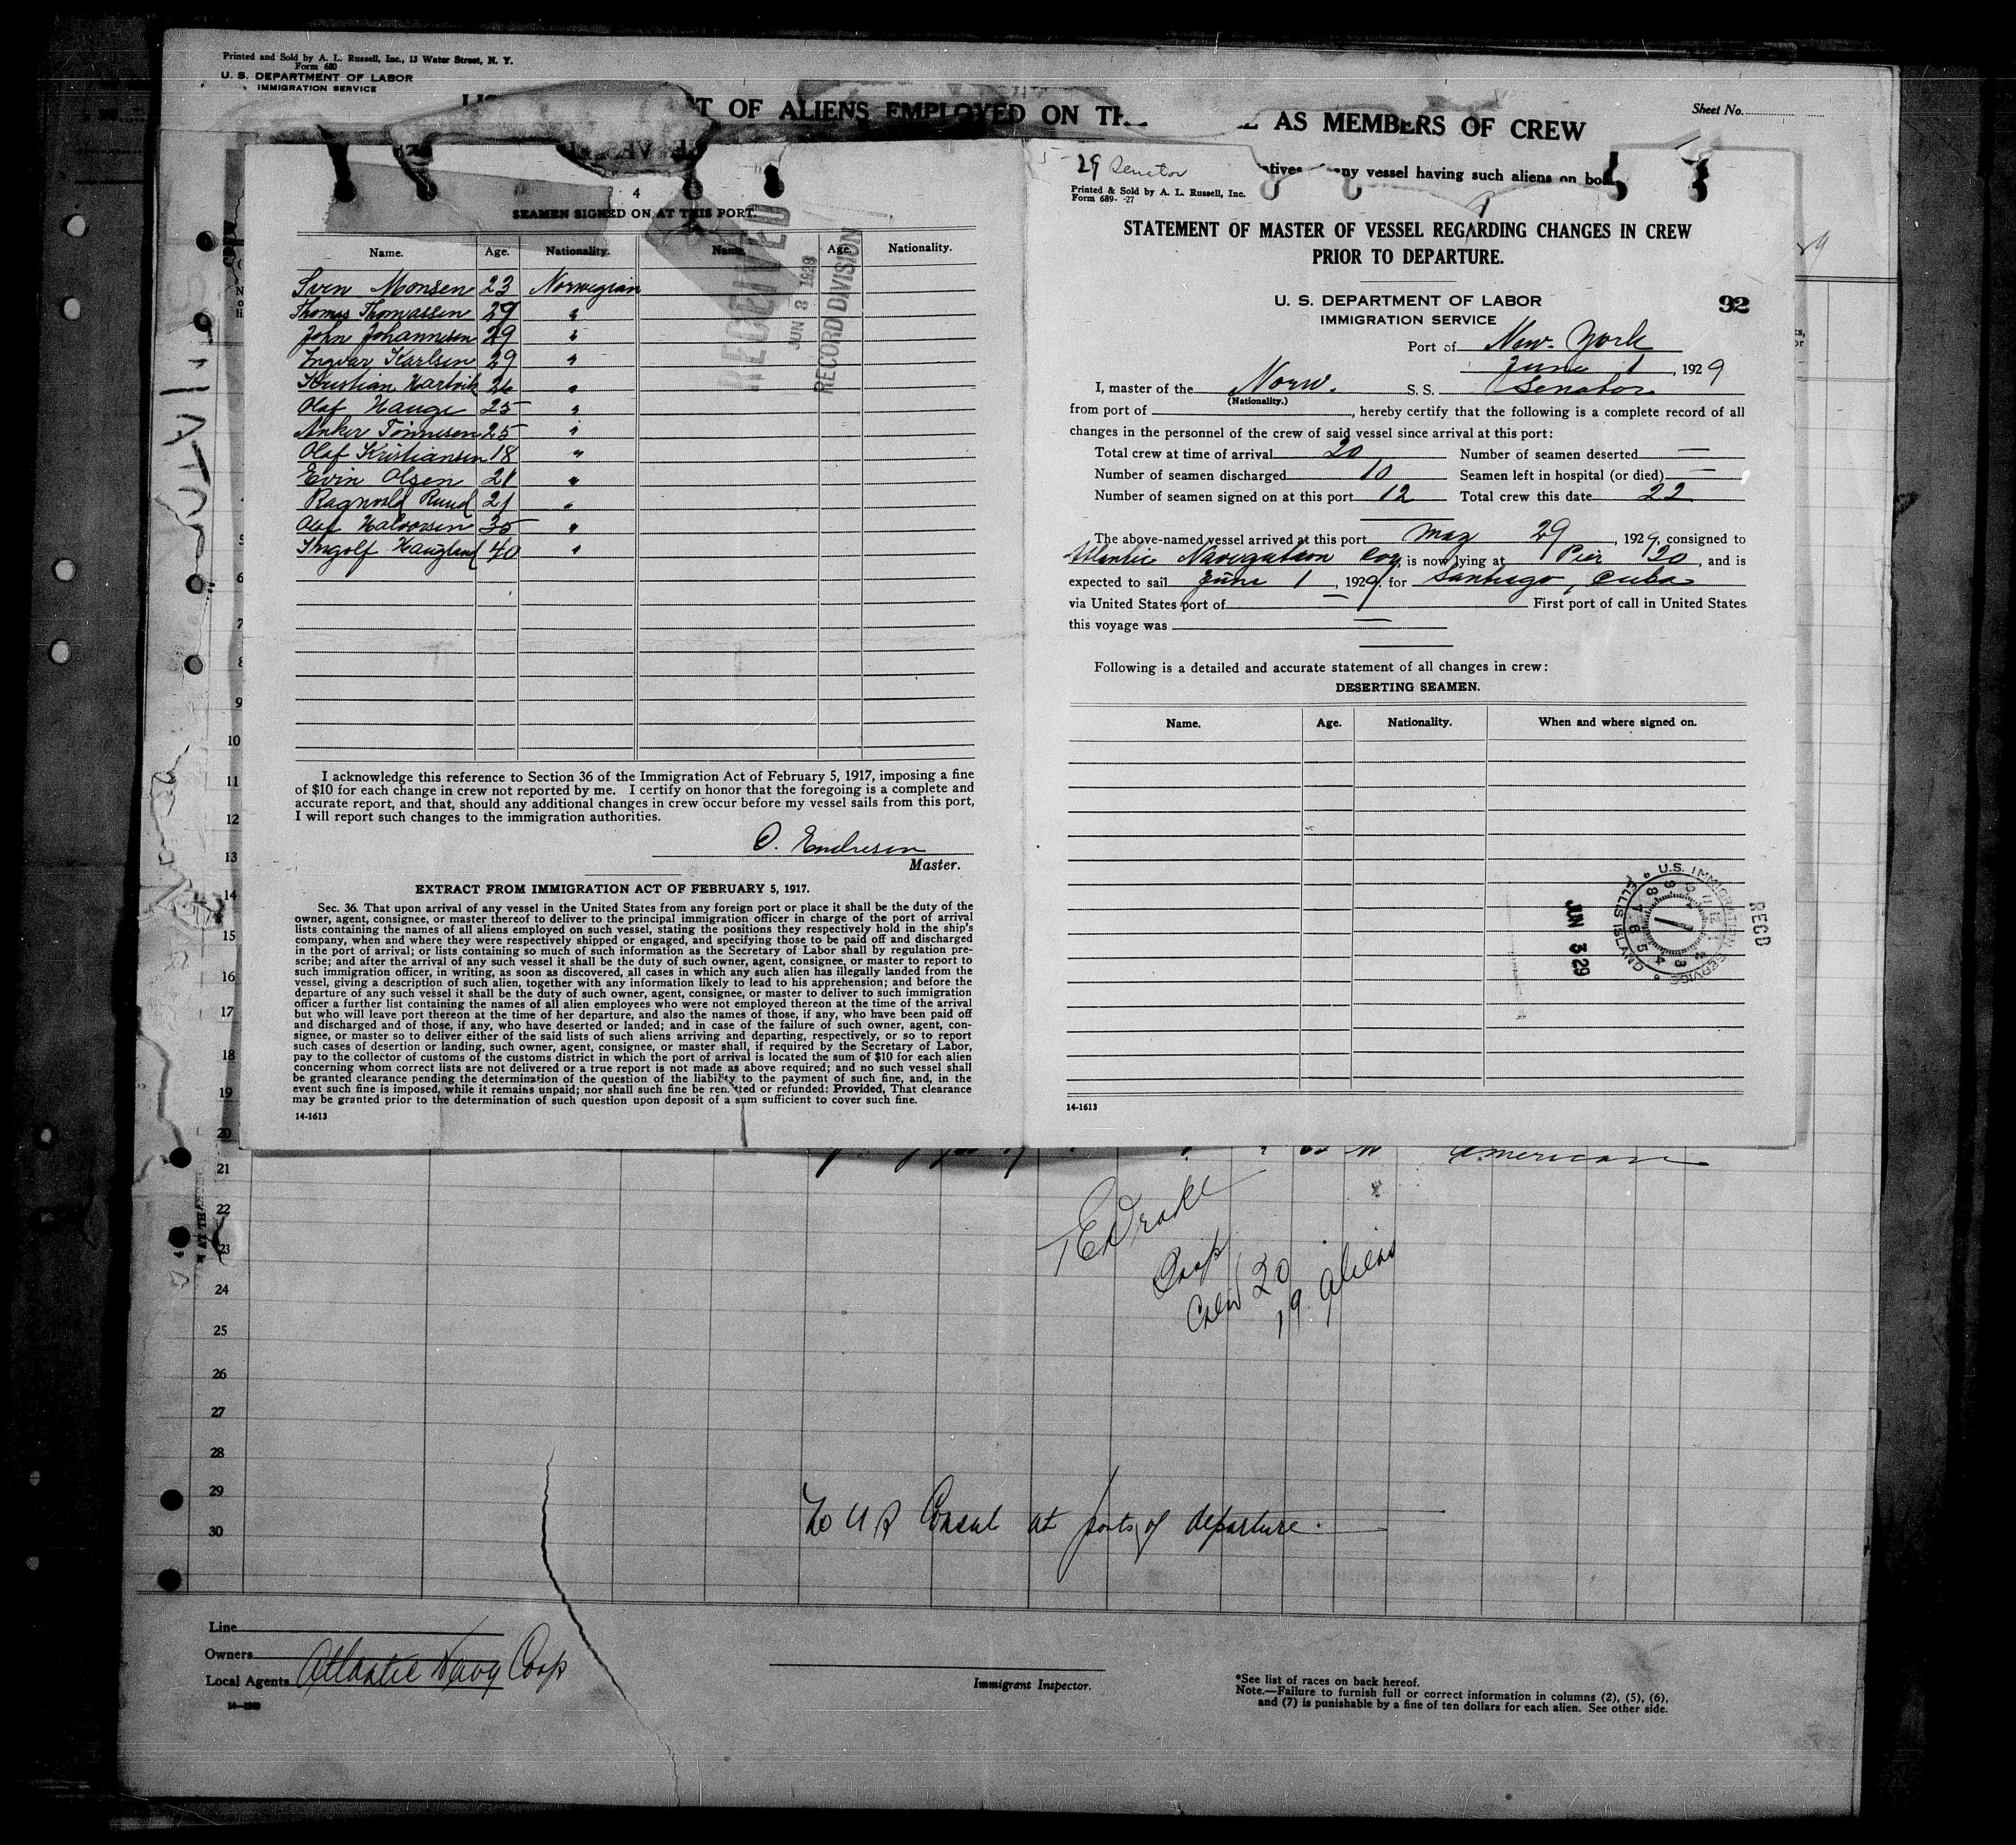 Printed and Sold by A. L. Russell, Inc., 13 Water Street, N. Y.
Form 680
U. S. DEPARTMENT OF LABOR
IMMIGRATION SERVICE
OF ALIENS EMPLOYED ON AS MEMBERS OF CREW
Sheet No.
any vessel having such aliens on
4
SEAMEN SIGNED ON AT THIS PORT.
Name. Age. Nationality. Name. Age. Nationality.
Sven Monsen 23 Norwegian
Thomas Thomassen 29 "
John Johannesen 29 "
Ingvar Karlsen 29 "
Kristian Hartvik 26 "
Olaf Hauge 25 "
Anker Tönnesen 25 "
Olaf Kristiansen 18 "
Eivin Olsen 21 "
Ragnvald Ruud 21 "
Olaf Halvorsen 35 "
Ingolf Haugland 40 "
RECEIVED
JUN 8 1929
RECORD DIVISION
I acknowledge this reference to Section 36 of the Immigration Act of February 5, 1917, imposing a fine
of $10 for each change in crew not reported by me. I certify on honor that the foregoing is a complete and
accurate report, and that, should any additional changes in crew occur before my vessel sails from this port,
I will report such changes to the immigration authorities.
O. Endresen
Master.
EXTRACT FROM IMMIGRATION ACT OF FEBRUARY 5, 1917.
Sec. 36. That upon arrival of any vessel in the United States from any foreign port or place it shall be the duty of the
owner, agent, consignee, or master thereof to deliver to the principal immigration officer in charge of the port of arrival
lists containing the names of all aliens employed on such vessel, stating the positions they respectively hold in the ship's
company, when and where they were respectively shipped or engaged, and specifying those to be paid off and discharged
in the port of arrival; or lists containing so much of such information as the Secretary of Labor shall by regulation pre-
scribe; and after the arrival of any such vessel it shall be the duty of such owner, agent, consignee, or master to report to
such immigration officer, in writing, as soon as discovered, all cases in which any such alien has illegally landed from the
vessel, giving a description of such alien, together with any information likely to lead to his apprehension; and before the
departure of any such vessel it shall be the duty of such owner, agent, consignee, or master to deliver to such immigration
officer a further list containing the names of all alien employees who were not employed thereon at the time of the arrival
but who will leave port thereon at the time of her departure, and also the names of those, if any, who have been paid off
and discharged and of those, if any, who have deserted or landed; and in case of the failure of such owner, agent, con-
signee, or master so to deliver either of the said lists of such aliens arriving and departing, respectively, or so to report
such cases of desertion or landing, such owner, agent, consignee, or master shall, if required by the Secretary of Labor,
pay to the collector of customs of the customs district in which the port of arrival is located the sum of $10 for each alien
concerning whom correct lists are not delivered or a true report is not made as above required; and no such vessel shall
be granted clearance pending the determination of the question of the liability to the payment of such fine, and, in the
event such fine is imposed, while it remains unpaid; nor shall such fine be remitted or refunded: Provided, That clearance
may be granted prior to the determination of such question upon deposit of a sum sufficient to cover such fine.
14-1613
5-29 Senator
Printed & Sold by A. L. Russell, Inc.
Form 689- -27
STATEMENT OF MASTER OF VESSEL REGARDING CHANGES IN CREW
PRIOR TO DEPARTURE.
U. S. DEPARTMENT OF LABOR
IMMIGRATION SERVICE
92
Port of New York
June 1, 1929
I, master of the Norw. S. S. Senator
(Nationality.)
from port of , hereby certify that the following is a complete record of all
changes in the personnel of the crew of said vessel since arrival at this port:
Total crew at time of arrival 20 Number of seamen deserted —
Number of seamen discharged 10 Seamen left in hospital (or died) —
Number of seamen signed on at this port 12 Total crew this date 22
The above-named vessel arrived at this port May 29, 1929, consigned to
Atlantic Navigation Coy, is now lying at Pier 20, and is
expected to sail June 1, 1929. for Santiago, Cuba
via United States port of — First port of call in United States
this voyage was —
Following is a detailed and accurate statement of all changes in crew:
DESERTING SEAMEN.
Name. Age. Nationality. When and where signed on.
U.S. IMMIGRATION SERVICE ELLIS ISLAND
RECD
JUN 3 29
14-1613
5
6
7
8
9
10
11
12
13
14
15
16
17
18
19
20
American
21
22
23
24
25
26
27
28
29
30
Drake
Crew 20
19 aliens
To U S Consul at ports of departure.
Line
Owners
Local Agents Atlantic Navg Corp
Immigrant Inspector.
*See list of races on back hereof.
Note.—Failure to furnish full or correct information in columns (2), (5), (6),
and (7) is punishable by a fine of ten dollars for each alien. See other side.